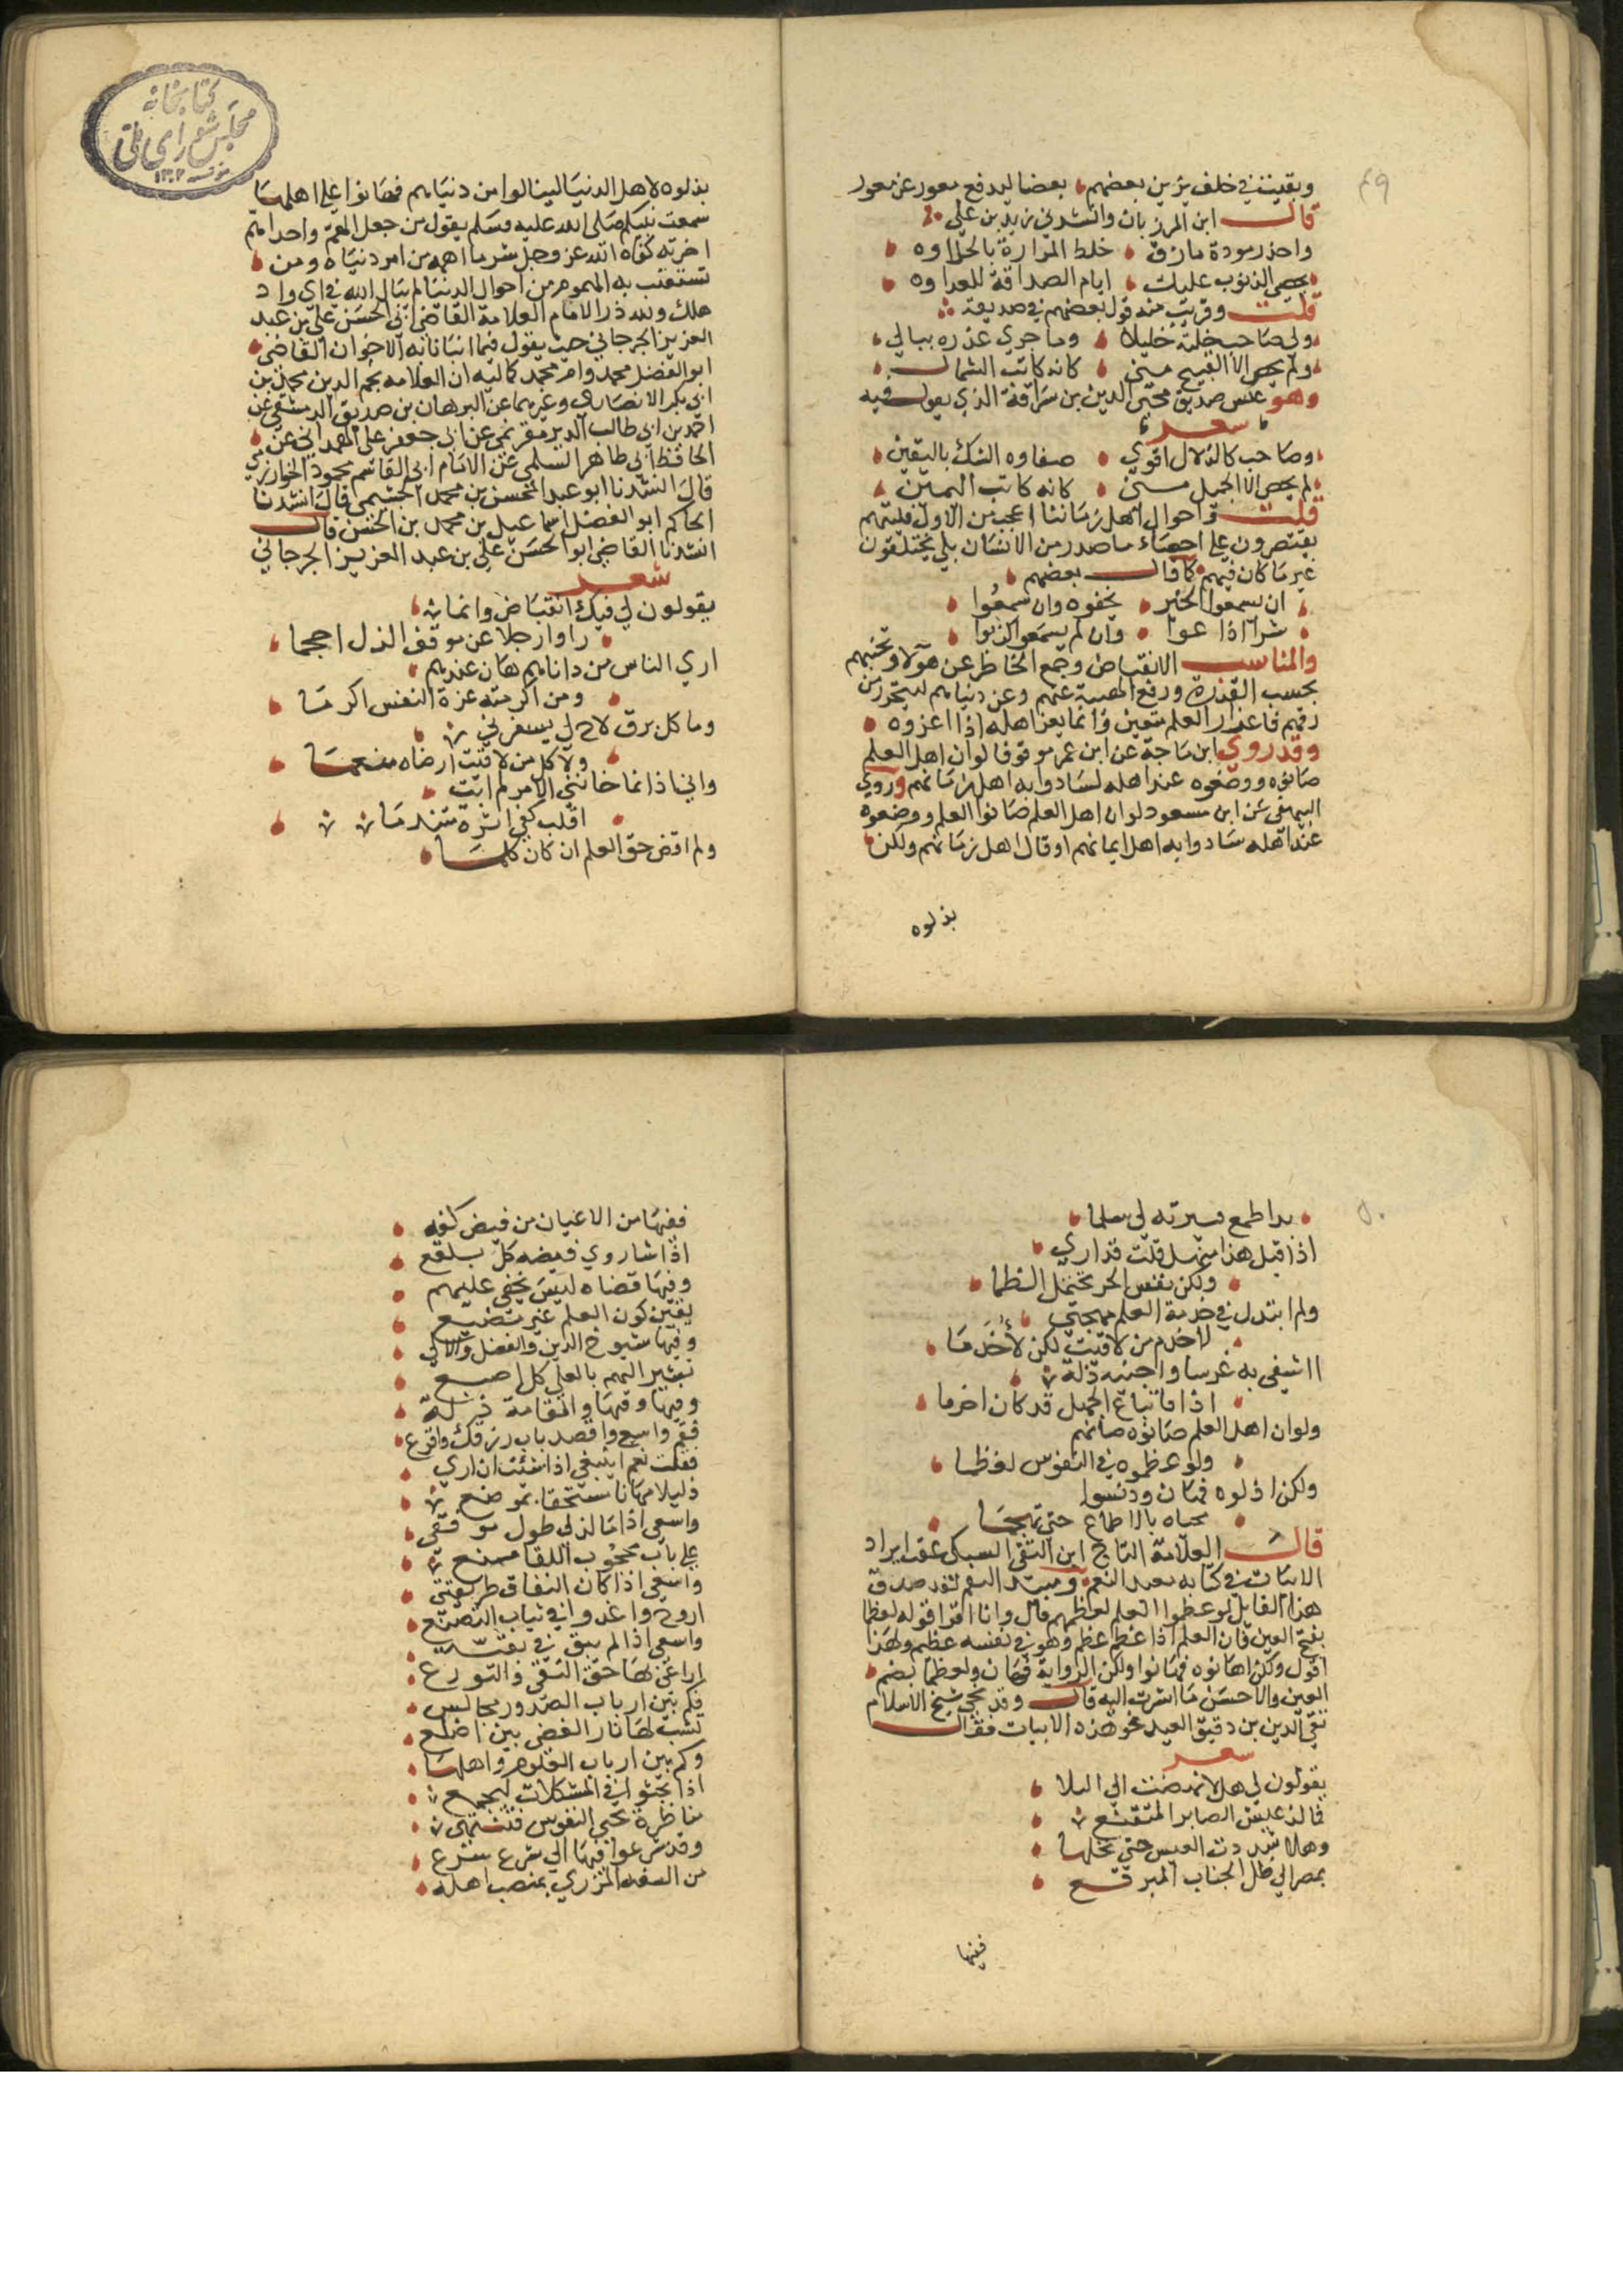 ٤٩
وبقيت في خلف يزين بعضهم بعضا ليدفع معور عن معور
قال ابن المرزبان وانشدني يزيد بن علي
واحذر مودة ماذق خلط المرارة بالحلاوه
يحصي الذنوب عليك ايام الصداقة للعداوه
قلت وقريب منه قول بعضهم في صديقه
ولي صاحب خلته خليلا وما جري غدره ببالي
ولم يحص الا القبيح مني كانه كاتب الشمال
وهو عكس صديق محيي الدين بن سراقة الذي يقول فيه
شعر
وصاحب كالزلال اقوي صفاوه الشك باليقين
لم يحص الا الجميل مني كانه كاتب اليمين
قلت واحوال اهل زماننا اعجب من الاول فليتهم
يقتصرون علي احصاء ما صدر من الانسان بل يختلقون
غير ما كان فيهم كما قال بعضهم
ان يسمعوا الخير يخفوه وان سمعوا
شرا اذاعوا وان لم يسمعوا كذبوا
والمناسب الانقباض وجمع الخاطر عن هولا وتجنبهم
بحسب القدرة ورفع الهمة عنهم وعن دنياهم ليتحرر من
رقهم فاعزاز العلم متعين وانما يعز اهله اذا اعزوه
وقد روي ابن ماجة عن ابن عمر موقوفا لو ان اهل العلم
صانوه ووضعوه عند اهله لسادوا به اهل زمانهم وروي
البيهقي عن ابن مسعود لو ان اهل العلم صانوا العلم ووضعوه
عند اهله سادوا به اهل ايمانهم او قال اهل زمانهم ولكن
بذلوه
بذلوه لاهل الدنيا لينالوا من دنياهم فهانوا علي اهلها
سمعت نبيكم صلي الله عليه وسلم يقول من جعل الهم واحدا هم
اخرته كفاه الله عز وجل شر ما اهمه من امر دنياه ومن
تشعبت به الهموم من احوال الدنيا لم يبال الله في اي واد
هلك ولله در الامام العلامة القاضي ابي الحسن علي بن عبد
العزيز الجرجاني حيث يقول فيما انبانا به الاخوان القاضي
ابو الفضل محمد وام محمد كماليه ان العلامه نجم الدين محمد بن
ابي بكر الانصاري وغيرهما عن البرهان بن صديق الدمشقي عن
احمد بن ابي طالب الدير مقرنمي عن ابي جعفر علي الهمداني عن
الحافظ ابي طاهر السلمي عن الامام ابي القاسم محمود الخوارزمي
قال انشدنا ابو عبد المحسن بن محمد الجشمي قال انشدنا
الحاكم ابو الفضل اسماعيل بن محمد بن الحسن قال
انشدنا القاضي ابو الحسن علي بن عبد العزيز الجرجاني
شعر
يقولون لي فيك انقباض وانما
راوا رجلا عن موقف الذل احجما
اري الناس من داناهم هان عندهم
ومن اكرمته عزة النفس اكرما
وما كل برق لاح لي يستفزني
ولا كل من لاقيت ارضاه منعما
واني اذا ما خانني الامر لم ابت
اقلب كفي اثره متندما
ولم اقض حق العلم ان كان كلما
٥٠
بدا طمع صيرته لي سلما
اذا قيل هذا منهل قلت قد اري
ولكن نفس الحر تحتمل الظما
ولم ابتذل في خدمة العلم مهجتي
لاخدم من لاقيت لكن لأخدما
ااشقي به غرسا واجنيه ذلة
اذا فاتباع الجهل قد كان احزما
ولو ان اهل العلم صانوه صانهم
ولو عظموه في النفوس لعظما
ولكن اذلوه فهان ودنسوا
محياه بالاطماع حتي تجهما
قال العلامة التاج ابن التقي السبكي عقب ايراد
الابيات في كتابه معيد النعم ومبيد النقم لقد صدق
هذا القايل لو عظموا العلم لعظمهم قال وانا اقرا قوله لعظما
بفتح العين فان العلم اذا عظم عظم وهو في نفسه عظيم ولهذا
اقول ولكن اهانوه فهانوا ولكن الرواية فهان ولعظما بضم
العين والاحسن ما اشرت اليه قال وقد نحي شيخ الاسلام
تقي الدين بن دقيق العيد نحو هذه الابيات فقال
شعر
يقولون لي هلا نهضت الي العلا
فما لذ عيش الصابر المتقنع
وهلا شددت العيس حتي تحلها
بمصر الي ظل الجناب المرفع
ففيها
ففيها من الاعيان من فيض كفه
اذا شا روي فيضه كل بلقع
وفيها قضاه ليس يخفي عليهم
يقين كون العلم غير مضيع
وفيها شيوخ الدين والفضل والالي
تشير اليهم بالعلي كل اصبع
وفيها وفيها والمقامة ذلة
فقم واسع واقصد باب رزقك واقرع
فقلت نعم ابتغي اذا شئت ان اري
ذليلا مهانا مستخفا بموضع
واسعي اذا ما لذ لي طول موقفي
علي باب محجوب اللقا ممنع
واسعي اذا كان النفاق طريقتي
اروح واغدو في ثياب التصنع
واسعي اذا لم يبق في بقية
اراعي بها حق التقي والتورع
فكم بين ارباب الصدور مجالس
تشب لها نار الغضي بين اضلع
وكم بين ارباب العلوم واهلها
اذا بحثوا في المشكلات بمجمع
مناظرة تحمي النفوس فتنتهي
وقد شرعوا فيها الي شر مشرع
من السفه المزري بمنصب اهله